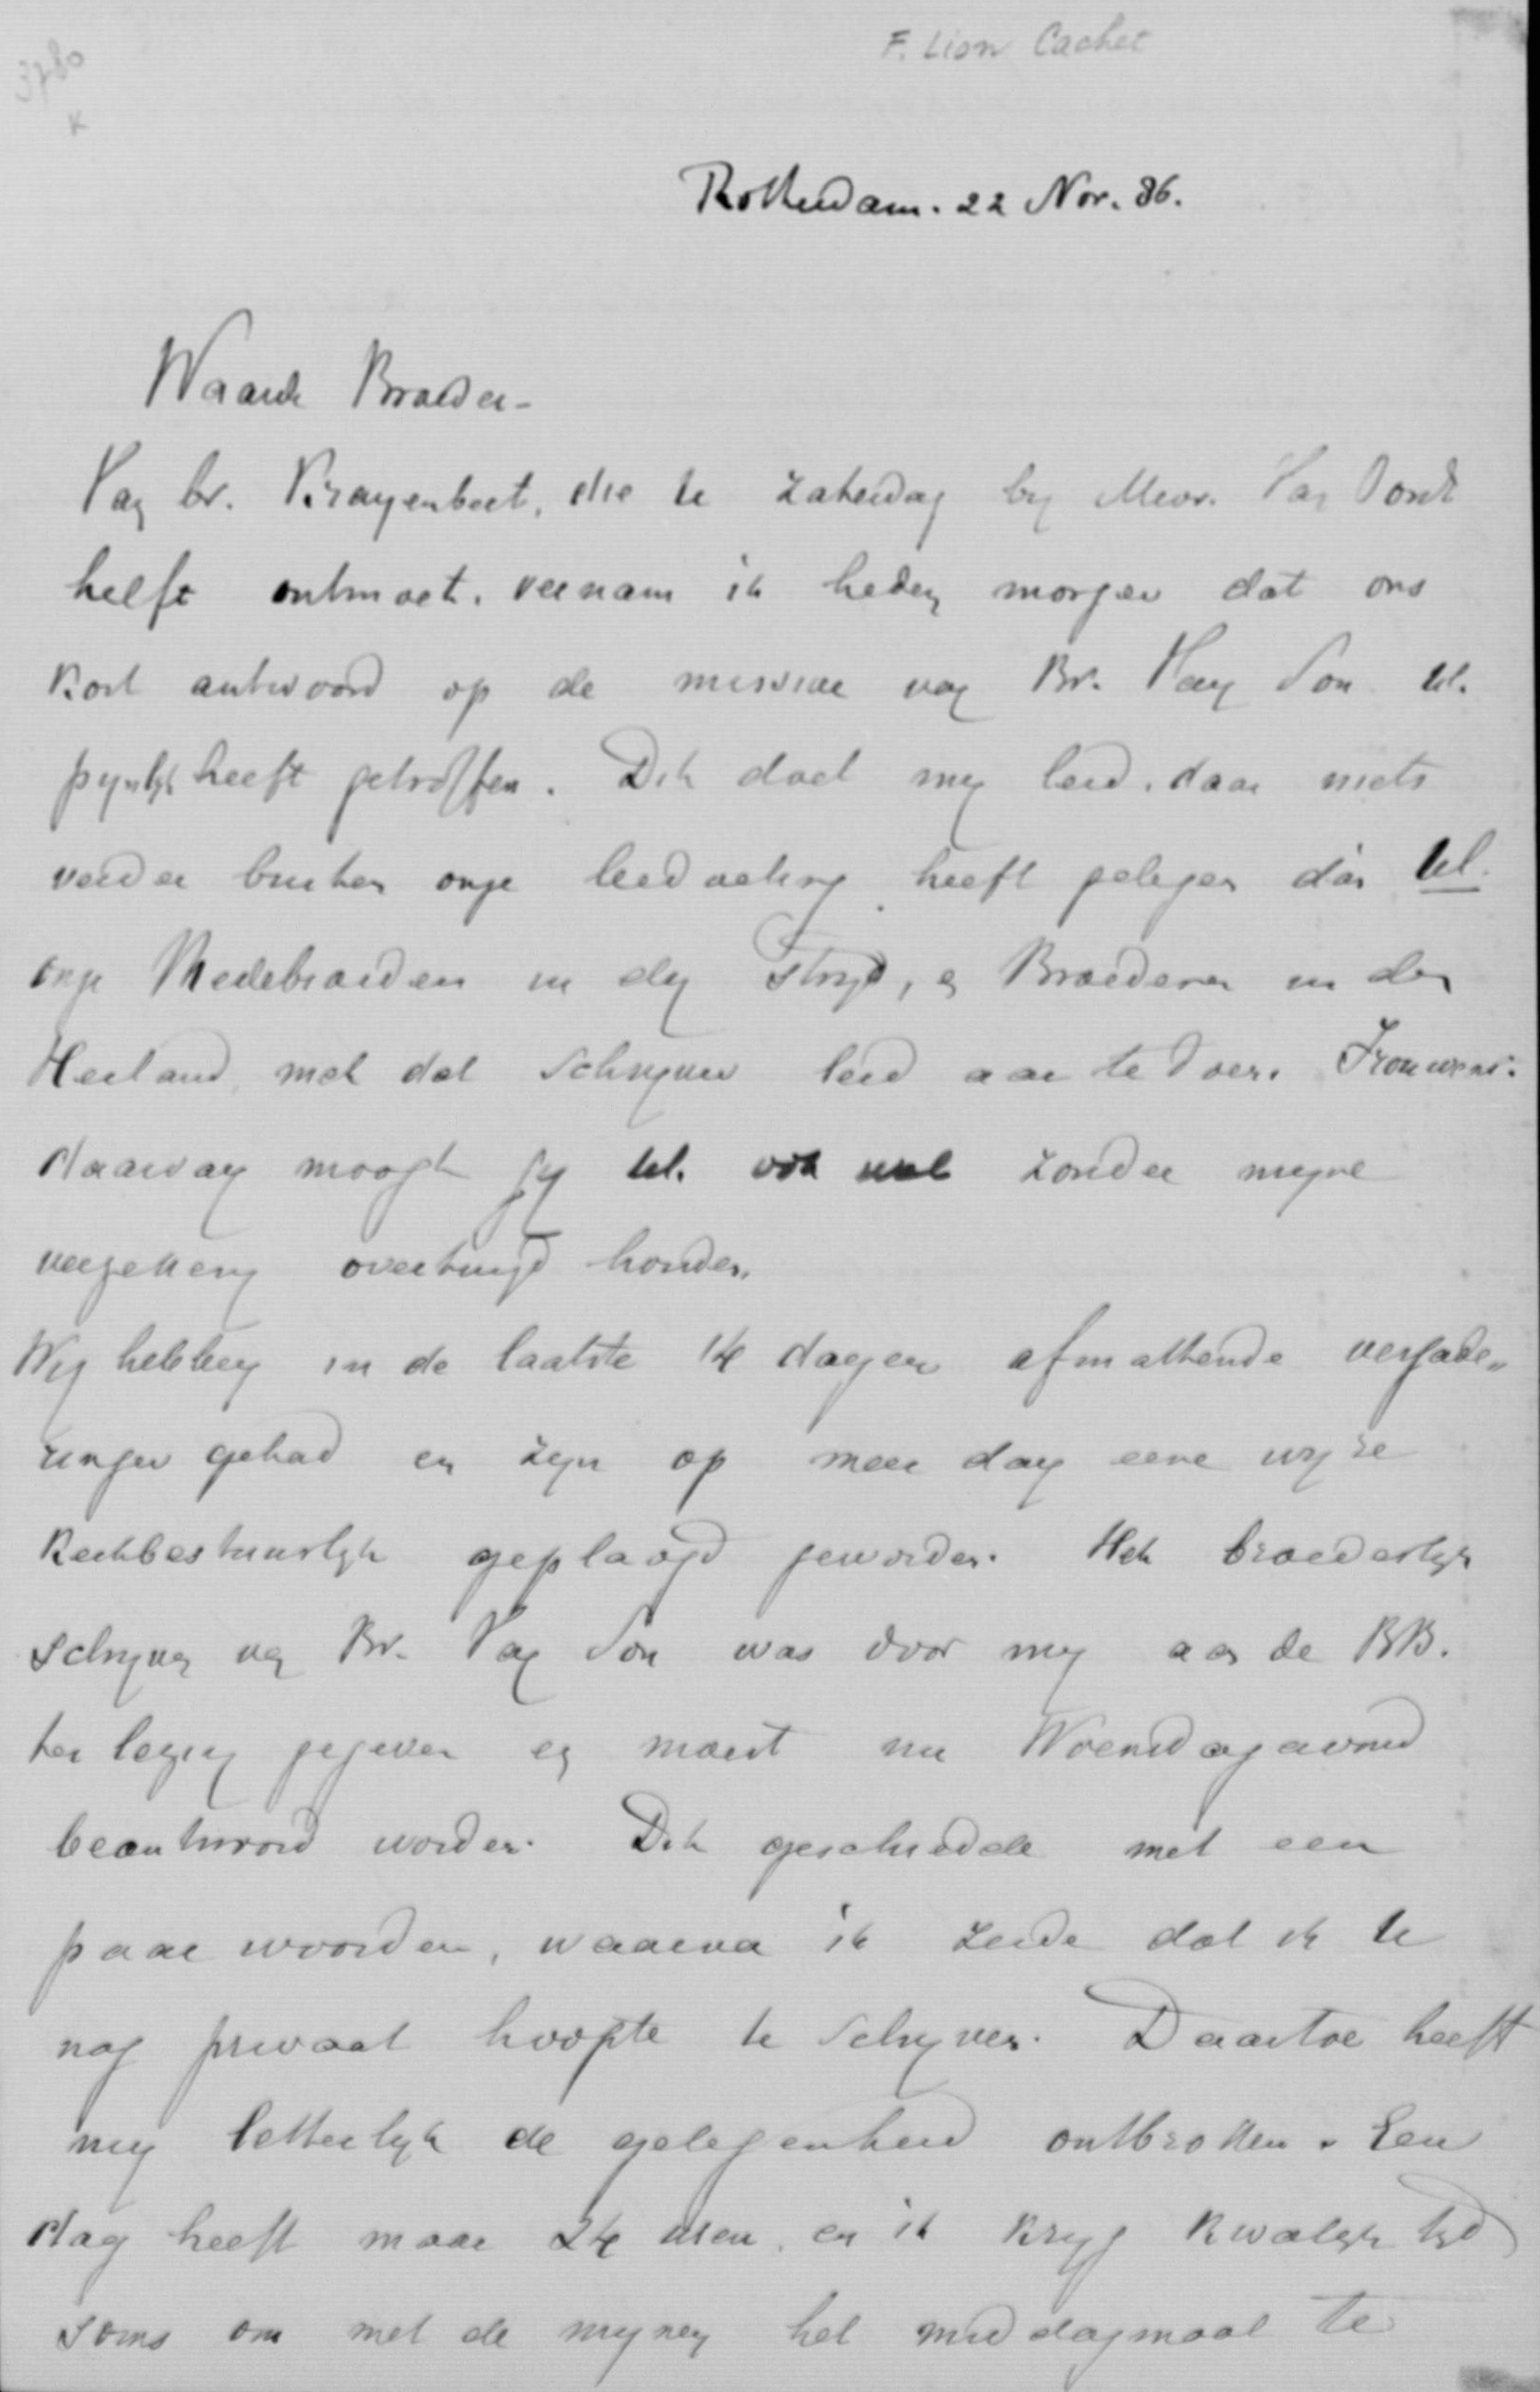 F. Lion Cachet
3780
K
Rotterdam. 22 Nov. 86.
Waarde Broeder-
Van br. Krayenbeet, die U Zaterdag by Mevr. Van Oordt
heeft ontmoet, vernam ik heden morgen dat ons
kort antwoord op de missive van Br. Van Son Ul.
pynlyk heeft getroffen. Dit doet my leed, daar niets
verder buiten onze bedoeling heeft gelegen dan Ul.
onze Medebroeders in den stryd, en Broederen in den
Heiland, met dat schryven leed aan te doen. Trouwens:
daarvan moogt gy Ul. ook wel zonder myne
verzekering overtuigd houden.
Wy hebben in de laatste 14 dagen afmattende vergade„
ringen gehad en zyn op meer dan eene wyze
Kerkbestuurlyk geplaagd geworden. Het broederlyk
schryven van Br. Van Son was door my aan de BB.
ter lezing gegeven en moest nu Woensdagavond
beantwoord worden. Dit geschiedde met een
paar woorden, waarna ik zeide dat ik U
nog privaat hoopte te schryven. Daartoe heeft
my letterlyk de gelegenheid ontbroken. Een
dag heeft maar 24 uren, en ik kryg kwalyk tyd
soms om met de mynen het middagmaal te